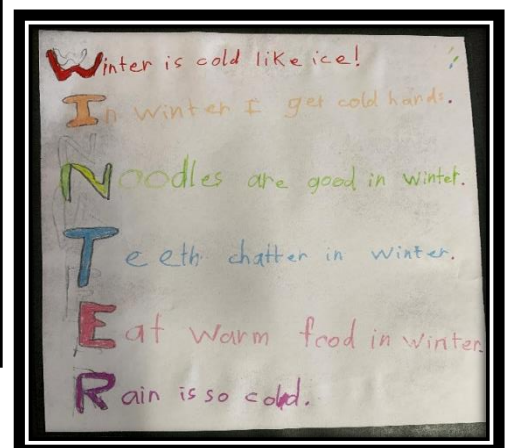 Winter is cold like ice!
In winter I get cold hands.
Noodles are good in winter.
Teeth chatter in winter.
Eat warm food in winter.
Rain is so cold.